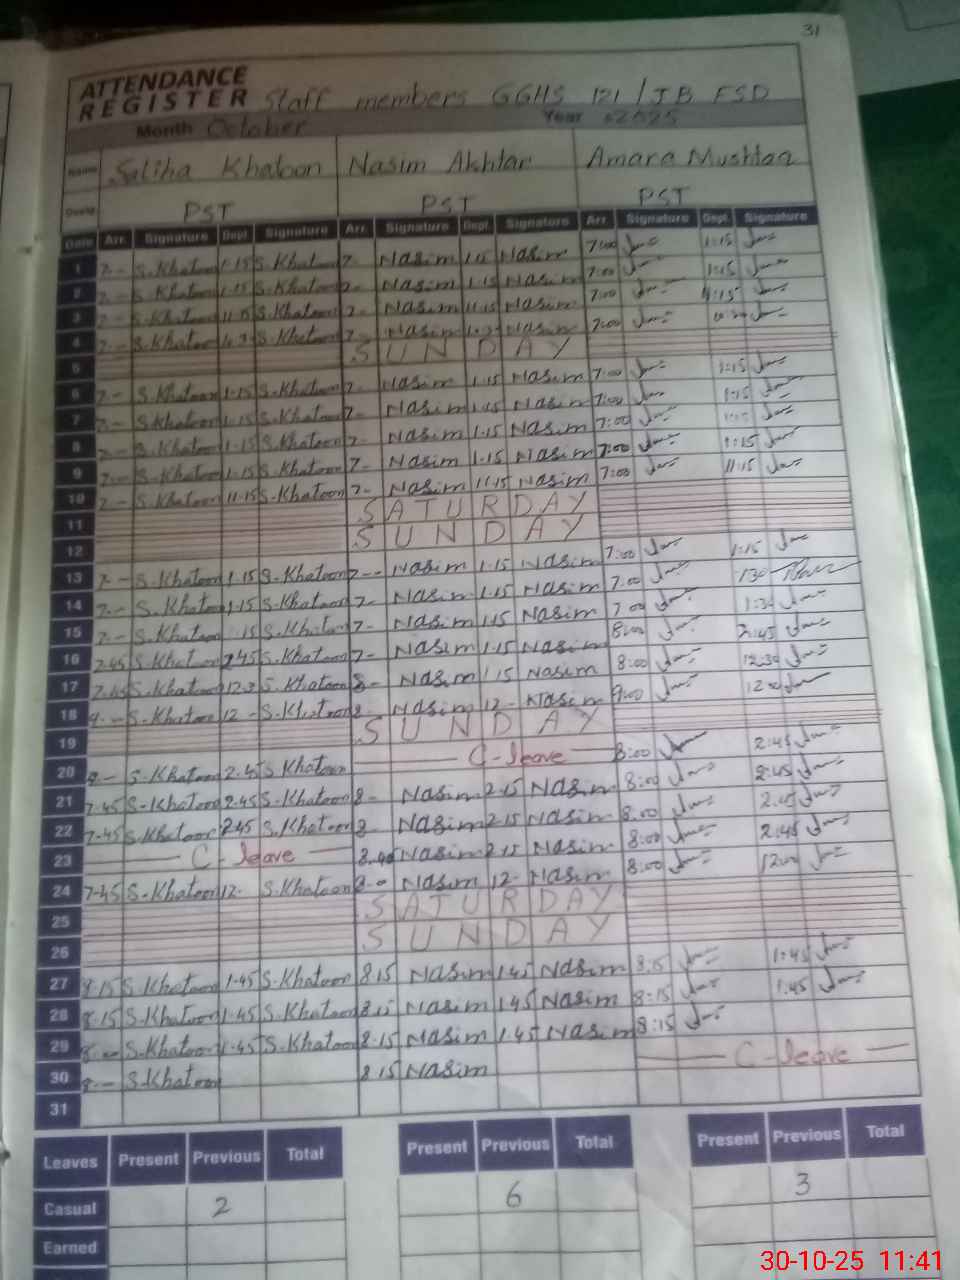 31
ATTENDANCE
REGISTER Staff members GGHS 121/JB FSD
Month October Year 2025
Name Saliha Khatoon Nasim Akhtar Amara Mushtaq
PST PST PST
Date Arr. Signature Dept. Signature Arr. Signature Dept. Signature Arr. Signature Dept. Signature
1 7-- S.Khatoon 1-15 S.Khatoon 7- Nasim 1.15 Nasim 7:00 1:15
2 7-- S.Khatoon 1-15 S.Khatoon 7- Nasim 1.15 Nasim 7:00 1:15
3 7-- S.Khatoon 11-15 S.Khatoon 7- Nasim 11.15 Nasim 7:00
4 7-- S.Khatoon S.Khatoon 7- Nasim Nasim 7:00
5 SUNDAY
6 7-- S.Khatoon 1-15 S.Khatoon 7- Nasim 1.15 Nasim 7:00 1:15
7 7-- S.Khatoon 1-15 S.Khatoon 7- Nasim 1.15 Nasim 7:00 1:15
8 7-- S.Khatoon 1-15 S.Khatoon 7- Nasim 1.15 Nasim 7:00
9 7-- S.Khatoon 1-15 S.Khatoon 7- Nasim 1.15 Nasim 7:00 1:15
10 7-- S.Khatoon 11-15 S.Khatoon 7- Nasim 11.15 Nasim 7:00 11:15
11 SATURDAY
12 SUNDAY
13 7-- S.Khatoon 1-15 S.Khatoon 7-- Nasim 1.15 Nasim 7:00 1:15
14 7-- S.Khatoon 1-15 S.Khatoon 7- Nasim 1.15 Nasim 7:00 1:30
15 7-- S.Khatoon 1-15 S.Khatoon 7- Nasim 1.15 Nasim 7:00 1:30
16 7.45 S.Khatoon 2.45 S.Khatoon 7- Nasim 1.15 Nasim 8:00 2:45
17 7.45 S.Khatoon S.Khatoon 8- Nasim 1.15 Nasim 8:00 12:30
18 S.Khatoon 12- S.Khatoon 8- Nasim 12- Nasim 9:00 12:00
19 SUNDAY
20 8-- S.Khatoon 2.45 S.Khatoon C-leave 8:00 2:45
21 7.45 S.Khatoon 2.45 S.Khatoon 8- Nasim 2.15 Nasim 8:00 2:45
22 7.45 S.Khatoon 2.45 S.Khatoon 8- Nasim 2.15 Nasim 8:00 2:45
23 C-leave Nasim 2.15 Nasim 8:00 2:45
24 7.45 S.Khatoon 12- S.Khatoon Nasim 12- Nasim 8:00 12:00
25 SATURDAY
26 SUNDAY
27 8.15 S.Khatoon 1-45 S.Khatoon 8.15 Nasim 1.45 Nasim 8:15 1:45
28 8.15 S.Khatoon 1-45 S.Khatoon 8.15 Nasim 1.45 Nasim 8:15 1:45
29 8-- S.Khatoon 1-45 S.Khatoon 8.15 Nasim 1.45 Nasim 8:15
30 8-- S.Khatoon 8.15 Nasim C-leave
31
Leaves Present Previous Total Present Previous Total Present Previous Total
Casual 2 6 3
Earned
30-10-25 11:41